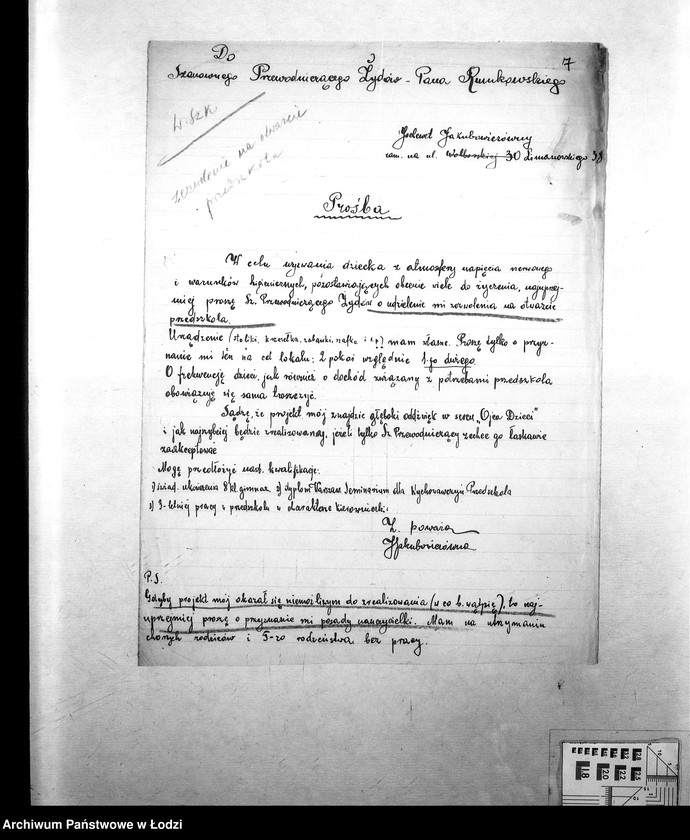 7
Do
Szanownego Przewodniczącego Żydów - Pana Rumkowskiego
W. Szk
zezwolenie na otwarcie
przedszkola
Jakubowiczówny
zam. na ul. Wolborskiej 30 Limanowskiego 38
Prośba
W celu wyrwania dziecka z atmosfery napięcia nerwowego
i warunków higienicznych, pozostawiających obecnie wiele do życzenia, najuprzej-
miej proszę Sz. Przewodniczącego Żydów o udzielenie mi zezwolenia na otwarcie
przedszkola.
Urządzenie (stoliki, krzesełka, zabawki, szafkę i t.p.) mam własne. Proszę tylko o przyz-
nanie mi na cel lokalu: 2 pokoi względnie 1-go dużego.
O frekwencję dzieci, jak również o dochód związany z potrzebami przedszkola
obowiązuję się sama troszczyć.
Sądzę, że projekt mój znajdzie głęboki oddźwięk w sercu „Ojca Dzieci"
i jak najrychlej będzie zrealizowany, jeżeli tylko Sz. Przewodniczący zechce go łaskawie
zaakceptować
Mogę przedłożyć nast. kwalifikacje:
1) świad. ukończenia 8 kl. gimnaz. 2) dyplom Warszaw. Seminarium dla Wychowawczyń Przedszkola
3) 3-letniej pracy w przedszkolu w charakterze kierowniczki.
Z poważa
HJakubowiczówna
P.S.
Gdyby projekt mój okazał się niemożliwym do zrealizowania (w co b. wątpię), to naj-
uprzejmiej proszę o przyznanie mi posady nauczycielki. Mam na utrzymaniu
chorych rodziców i 5-ro rodzeństwa bez pracy.
1.8
2.0
2.2
2.5
2.8
Archiwum Państwowe w Łodzi